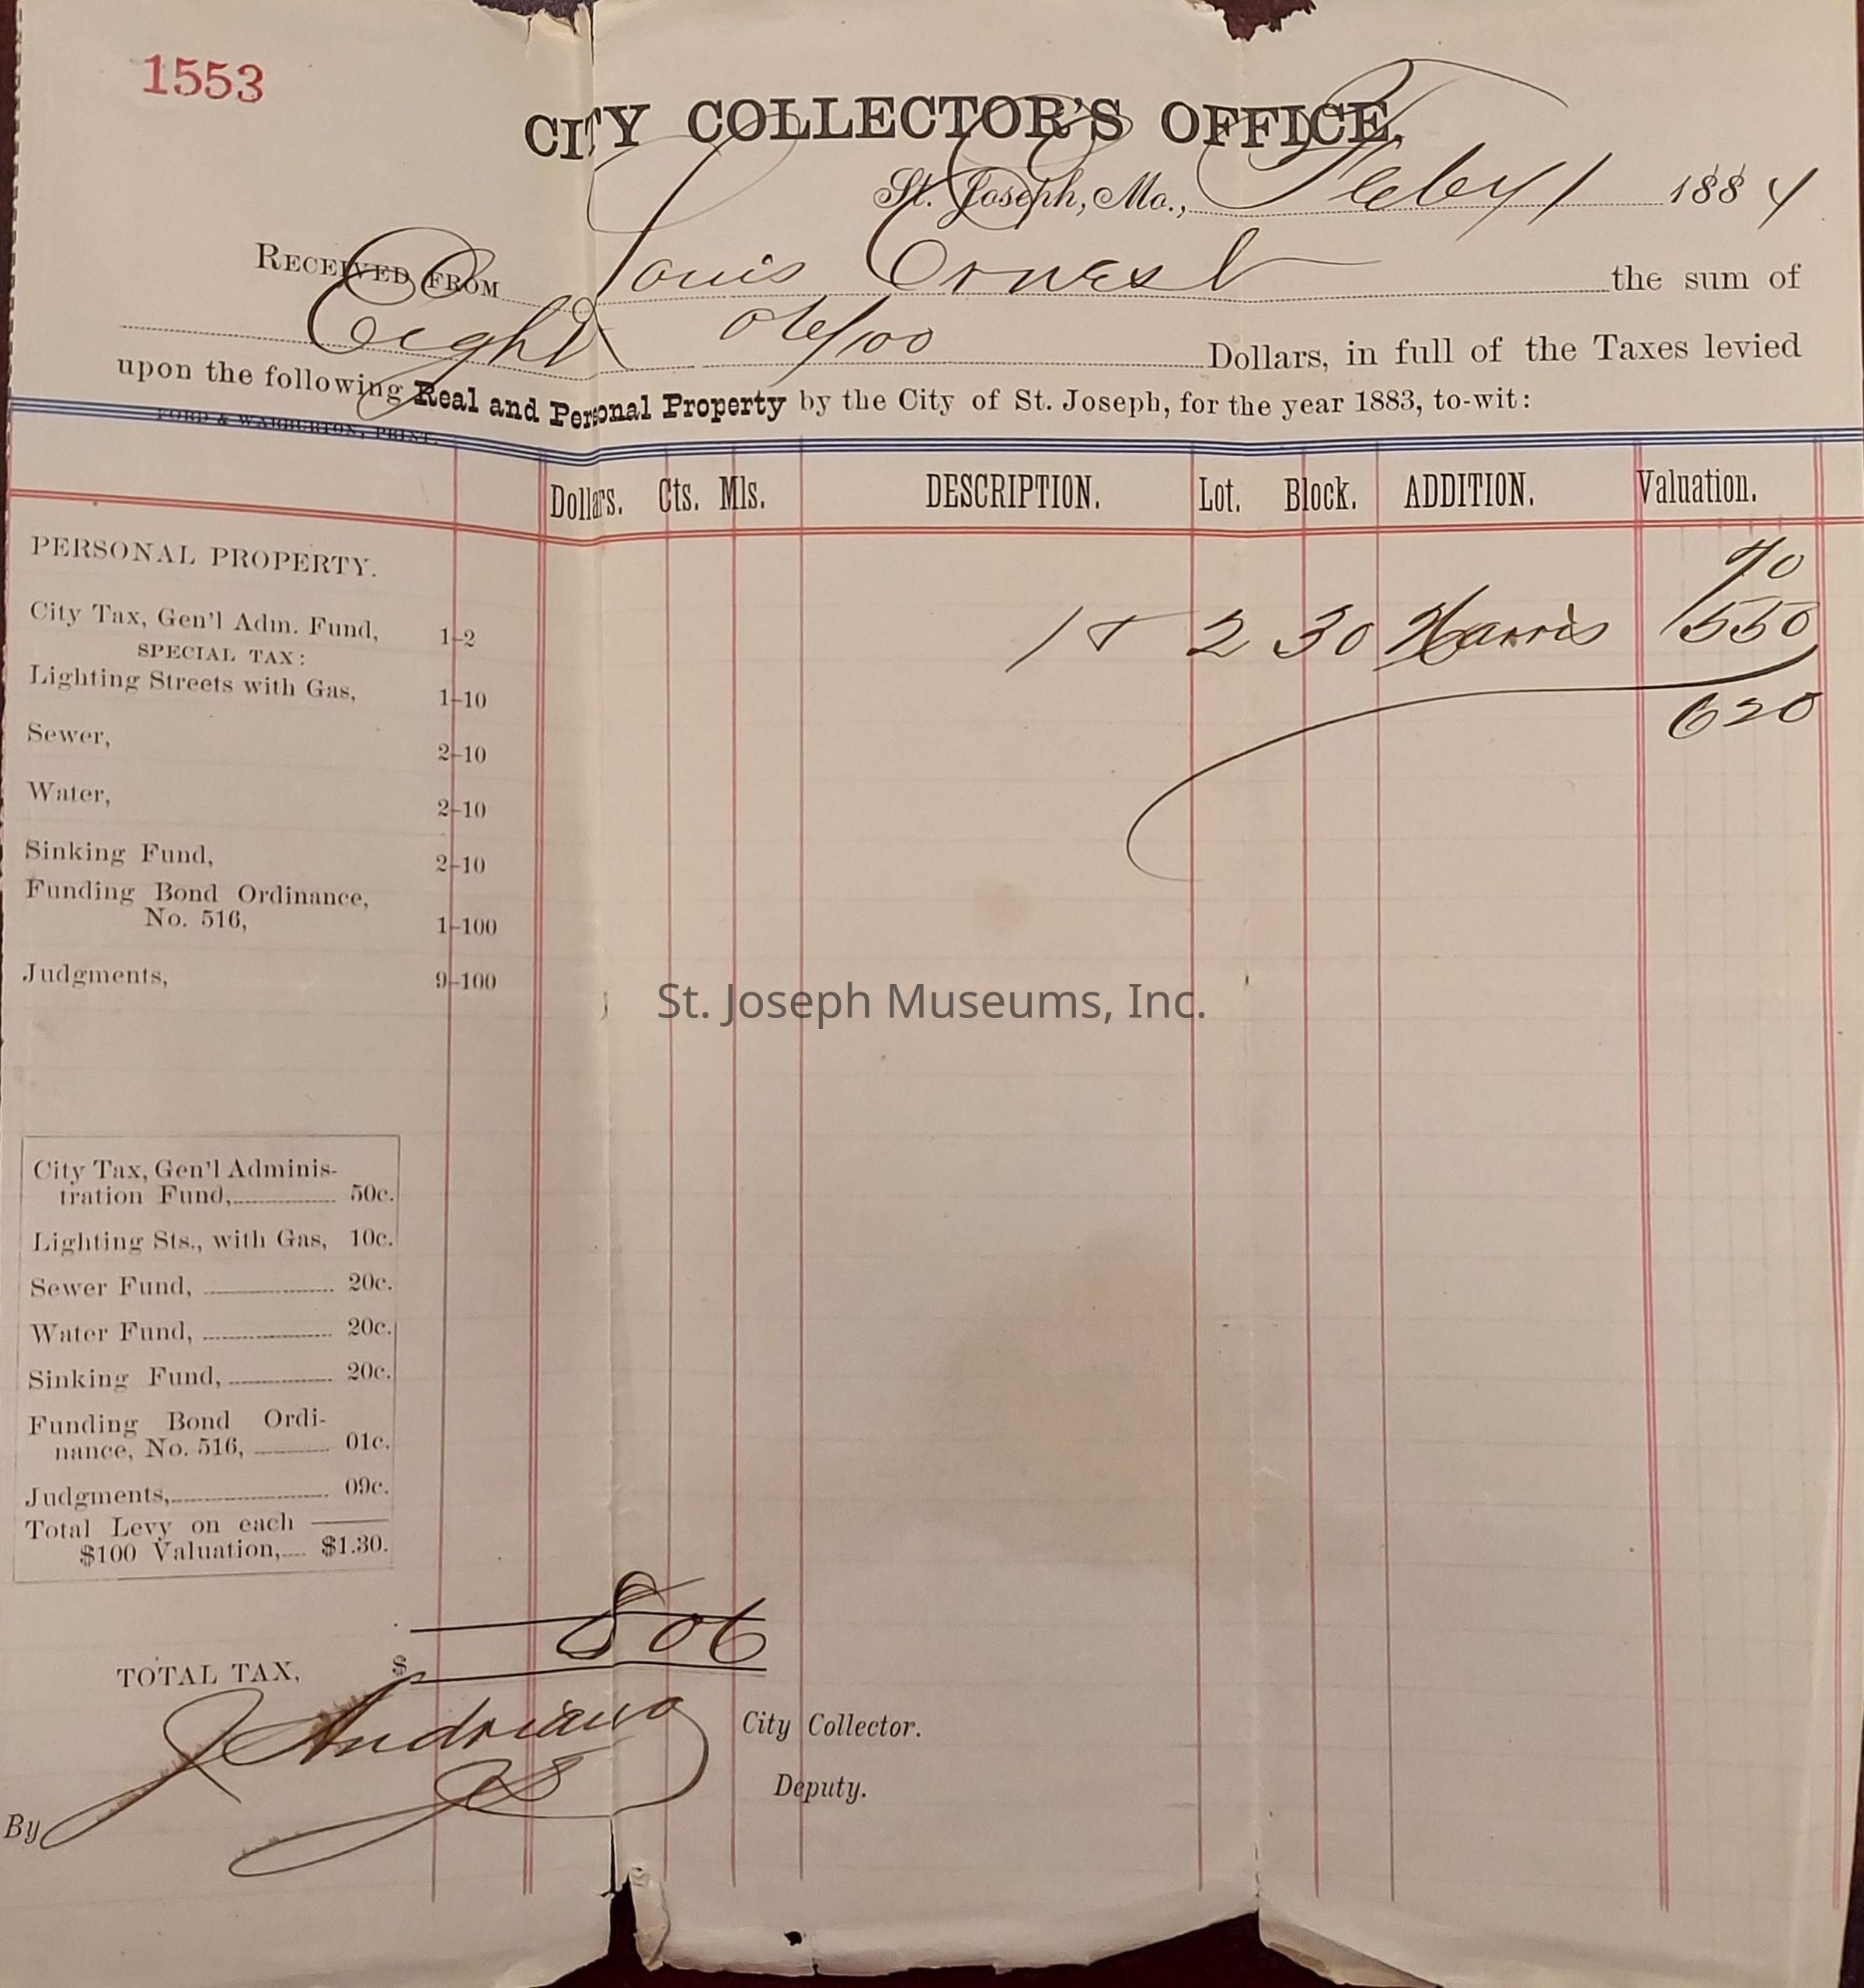 1553
CITY COLLECTOR'S OFFICE,
St. Joseph, Mo., Feby 1 1884
RECEIVED FROM Louis Ernest the sum of
Eight 06/100 Dollars, in full of the Taxes levied
upon the following Real and Personal Property by the City of St. Joseph, for the year 1883, to-wit:
FORD & WARBURTON, PRINT.
Dollars. Cts. Mls. DESCRIPTION. Lot. Block. ADDITION. Valuation.
PERSONAL PROPERTY. 70
City Tax, Gen'l Adm. Fund, 1-2 1 & 2 30 Harris 550
SPECIAL TAX:
Lighting Streets with Gas, 1-10 620
Sewer, 2-10
Water, 2-10
Sinking Fund, 2-10
Funding Bond Ordinance,
No. 516, 1-100
Judgments, 9-100
St. Joseph Museums, Inc.
City Tax, Gen'l Adminis-
tration Fund, 50c.
Lighting Sts., with Gas, 10c.
Sewer Fund, 20c.
Water Fund, 20c.
Sinking Fund, 20c.
Funding Bond Ordi-
nance, No. 516, 01c.
Judgments, 09c.
Total Levy on each
$100 Valuation, $1.30.
TOTAL TAX, $ 8 06
J Andriano City Collector.
By JS Deputy.